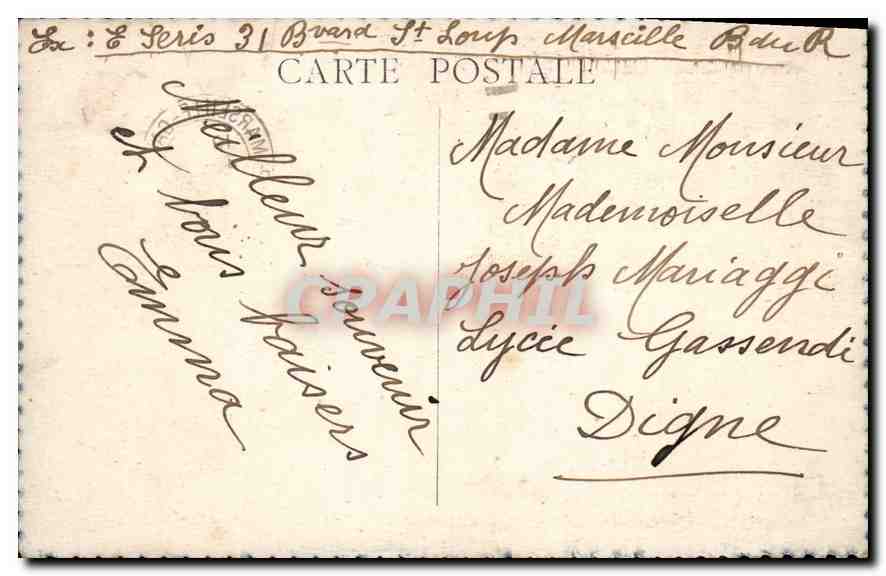 Ex : E Seris 31 Bvard St Loup Marseille B du R
CARTE POSTALE
Meilleur souvenir
et bons baisers
Emma
Madame Monsieur
Mademoiselle
Joseph Mariaggi
Lycée Gassendi
Digne
CPAPHIL